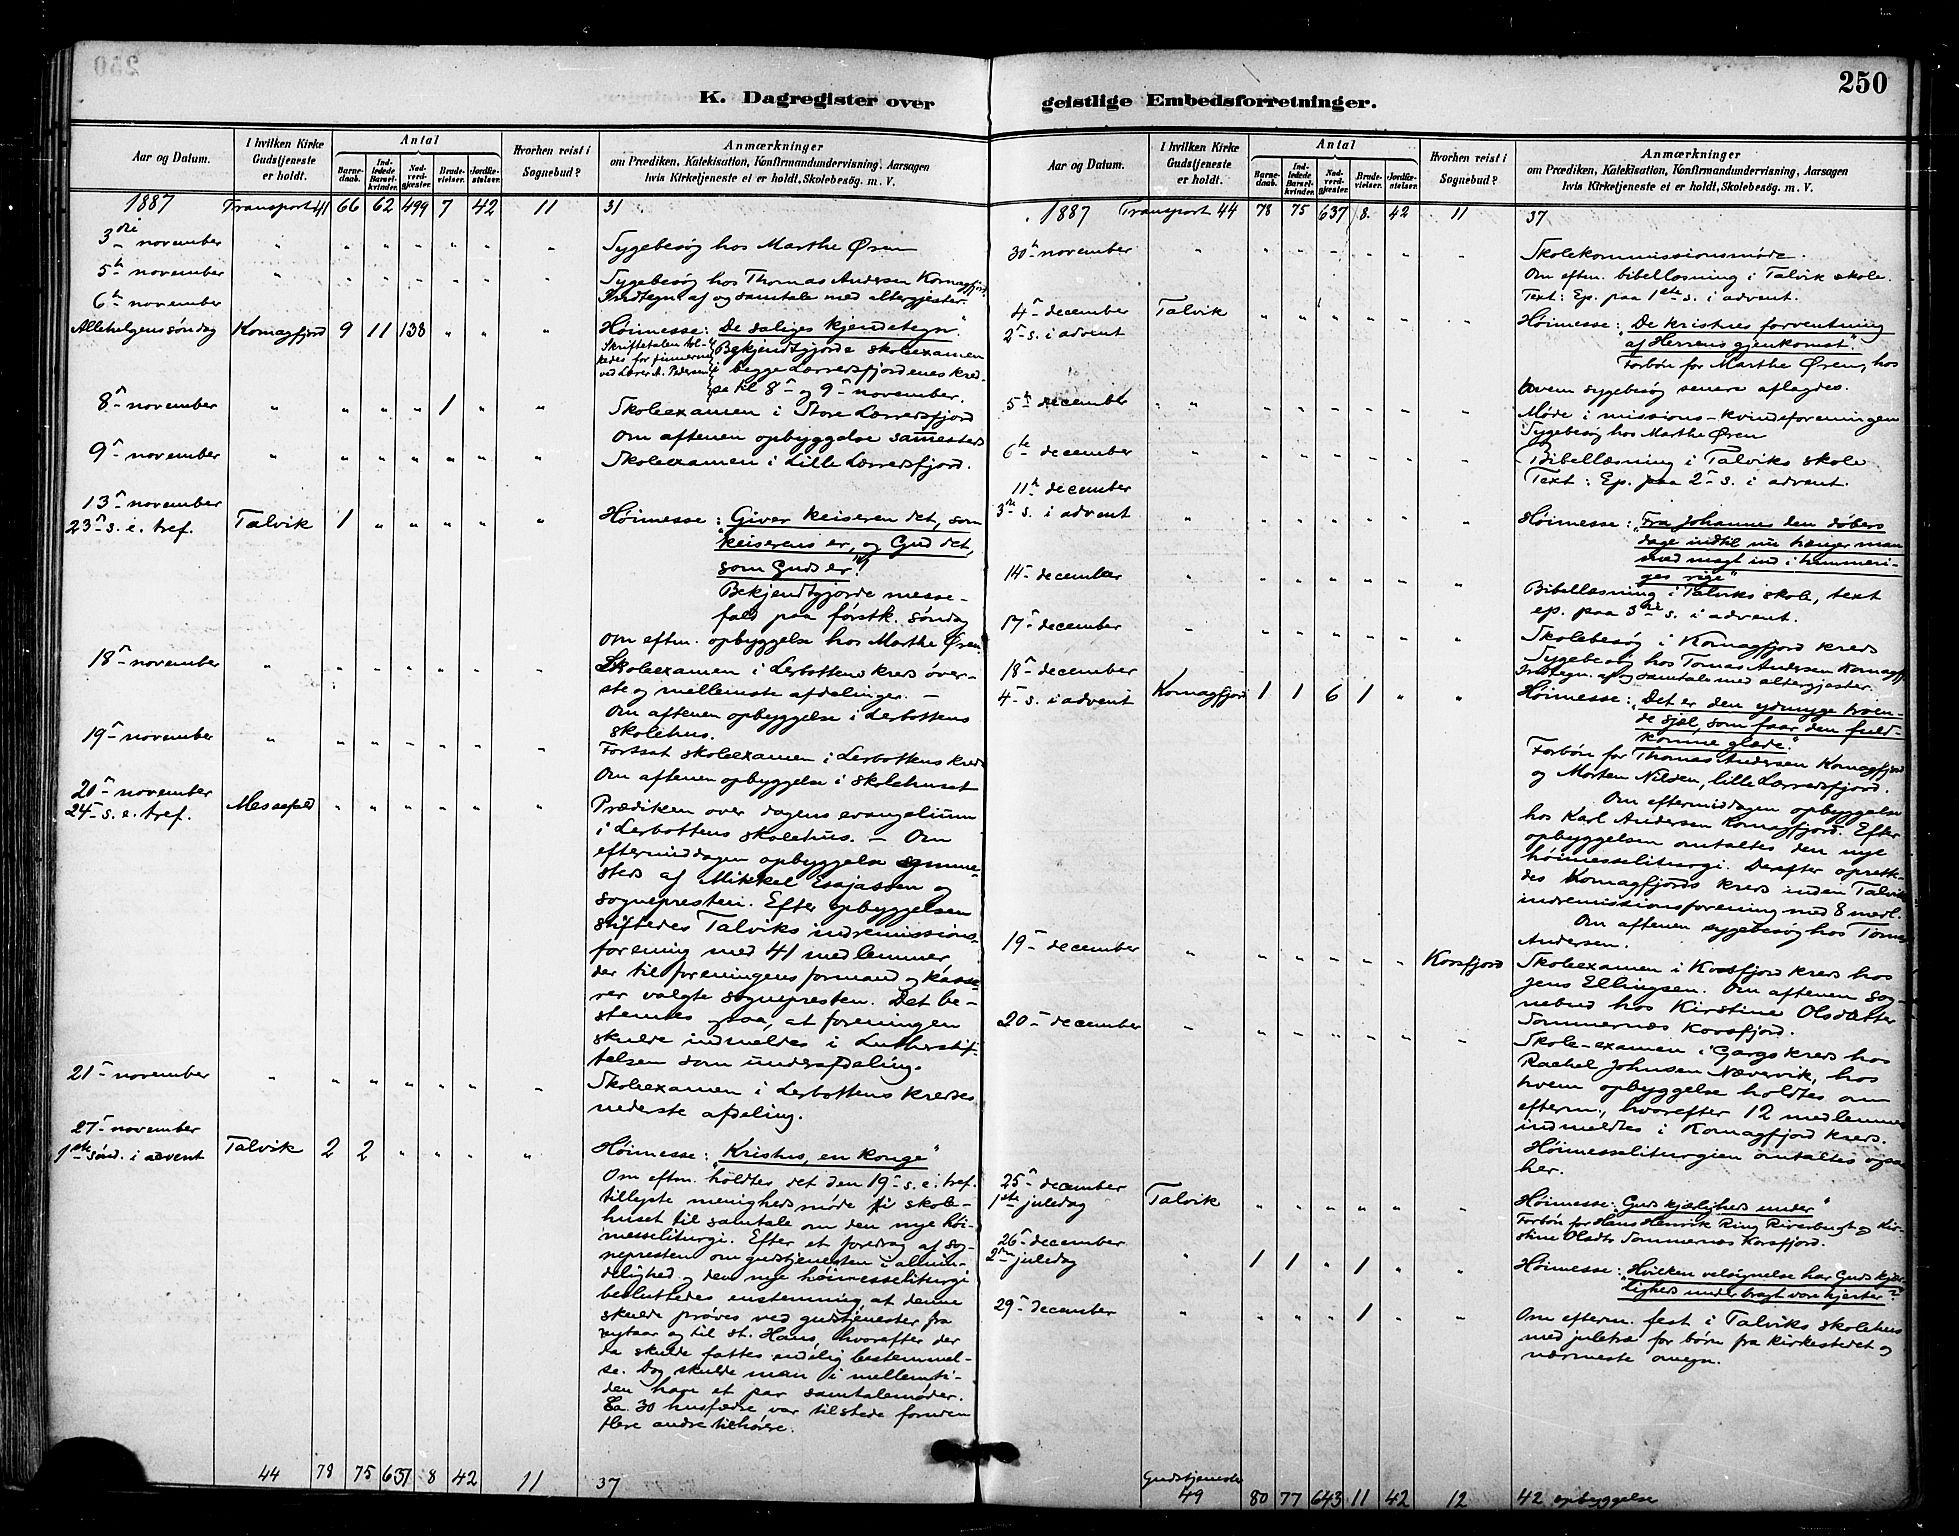 250
K. Dagregister over
geistlige Embedsforretninger.
Aar og Datum.
I hvilken Kirke Gudstjeneste er holdt.
Antal
Barnedaab.
Indledede Barselkvinder.
Nadverdgjester.
Brudevielser.
Jordfæstelser.
Hvorhen reist i Sognebud?
Anmærkninger
om Prædiken, Katekisation, Konfirmandundervisning, Aarsagen
hvis Kirketjeneste ei er holdt, Skolebesøg. m. V.
1887 Transport 41 66 62 499 7 42 11 31
3die november " " " " " " " Sygebesøg hos Marthe Øren
5te november " " " " " " " Sygebesøg hos Thomas Andersen Komagfjord.
6te november Fredtegn af og samtale med altergjester.
Allehelgens søndag Komagfjord 9 11 138 " " " Høimesse: "De saliges kjendetegn".
Skriftetalen tolkedes for finnerne ved Lærer A. Pedersen
Bekjendtgjorde skoleexamen
i begge Lærredsfjordenes kred-
se til 8de og 9de november.
8de november " " " " 1 " " Skoleexamen i Store Lærredsfjord
Om aftenen opbyggelse samesteds
9de november " " " " " " " Skoleexamen i Lille Lærredsfjord.
13de november
23de s. e. tref. Talvik 1 " " " " " Høimesse: "Giver keiseren det, som
keiserens er, og Gud det,
som Guds er!"
Bekjendtgjorde messe-
fald paa førstk. søndag
Om eftm. opbyggelse hos Marthe Øren.
18de november " " " " " " " Skoleexamen i Lerbottens kreds øver-
ste og mellemste afdelinger. –
Om aftenen opbyggelse i Lerbottens
skolehus.
19de november " " " " " " " Fortsat skoleexamen i Lerbottens kreds
Om aftenen opbyggelse i skolehuset
20de november
24de s. e. tref. Messefald " " " " " " Prædiken over dagens evangelium
i Lerbottens skolehus. – Om
eftermiddagen opbyggelse samme-
steds af Mikkel Esajassen og
sognepresten. Efter opbyggelsen
stiftedes Talviks indremissions-
forening med 41 medlemmer
der til foreningens formand og kasse-
rer valgte sognepresten. Det be-
stemtes ogsaa, at foreningen
skulde indmeldes i Lutherstif-
telsen som underafdeling.
21de november " " " " " " " Skoleexamen i Lerbottens kredses
nederste afdeling.
27de november
1ste sønd. i advent Talvik 2 2 " " " " Høimesse: "Kristus, en konge"
Om eftm. holdtes det den 19de s. e. tref.
tillyste menighedsmøde i skole-
huset til samtale om den nye høi-
messeliturgi. Efter et foredrag af sog-
nepresten om gudstjenesten i almin-
delighed og den nye høimesseliturgi
besluttedes enstemmig at denne
skulde prøves ved gudstjenester fra
nytaar og til st. Hans, hvorefter der
da skulde fattes endelig bestemmel-
se. Dog skulde man i mellemti-
den have et par samtalemøder.
Ca. 30 husfædre var tilstede foruden
flere andre tilhørere.
44 78 75 637 8 42 11 37
Aar og Datum.
I hvilken Kirke Gudstjeneste er holdt.
Antal
Barnedaab.
Indledede Barselkvinder.
Nadverdgjester.
Brudevielser.
Jordfæstelser.
Hvorhen reist i Sognebud?
Anmærkninger
om Prædiken, Katekisation, Konfirmandundervisning, Aarsagen
hvis Kirketjeneste ei er holdt, Skolebesøg. m. V.
1887 Transport 44 78 75 637 8 42 11 37
30te november " " " " " " " Skolekommissionsmøde.
Om eftm. bibellæsning i Talvik skole.
Text: Ep. paa 1ste s. i advent.
4de december Talvik " " " " " " Høimesse: "De kristnes forventning
2den s. i advent af Herrens gjenkomst".
Forbøn for Marthe Øren, hos
hvem sygebesøg senere aflagdes.
5te december " " " " " " " Møde i missions-kvindeforeningen
Sygebesøg hos Marthe Øren
6te december " " " " " " Bibellæsning i Talviks skole
Text: Ep. paa 2den s. i advent.
11te december
3die s. i advent " " " " " " " Høimesse: "Fra Johannes den døbers
dage indtil nu trænger man
med magt ind i himmeri-
ges rige"
14de december " " " " " " " Bibellæsning i Talviks skole, text
ep. paa 3die s. i advent.
17de december " " " " " " " Skolebesøg i Komagfjord kreds
Sygebesøg hos Tomas Andersen Komagfj.
18de december Fredtegn. af og samtale med altergjester.
4de s. i advent Komagfjord 1 1 6 1 " " Høimesse: "Det er den ydmyge troen-
de sjæl, som faar den fuld-
komne glæde."
Forbøn for Thomas Andersen Komagfjord
og Morten Nilsen, lille Lærredsfjord.
Om eftermiddagen opbyggelse
hos Karl Andersen Komagfjord. Efter
opbyggelsen omtaltes den nye
høimesseliturgi. Derefter opret-
des Komagfjords kreds inden Talviks
indremissionsforening med 8 medl.
Om aftenen sygebesøg hos Tomas
Andersen.
19de december " " " " " " Korsfjord Skoleexamen i Korsfjord kreds hos
Jens Ellingsen. Om aftenen sog-
nebud hos Kirstine Olsdatter
Sommernæs Korsfjord.
20de december " " " " " " " Skole-examen i Gargs kreds hos
Rachel Johnsen Nævervik, hos
hvem opbyggelse holdtes om
efterm., hvorefter 12 medlemmer
indmeldtes i Komagfjord kreds.
Høimesseliturgien omtaltes ogsaa
her.
25de december
1ste juledag Talvik " " " " " " Høimesse: "Guds kjærligheds under"
Forbøn for Hans Henrik Ring og Kir-
stine Olsdtr Sommernæs Korsfjord.
26de december
2den juledag " 1 1 " 1 " " Høimesse: "Hvilken velsignelse har Guds kjær-
ligheds under bragt vore hjerter?"
29de december " " " " 1 " " Om efterm. fest i Talviks skolehus
med juletræ for børn fra kirkestedet og
nærmeste omegn.
Gudstjenester
49 80 77 643 11 42 12 42 opbyggelse